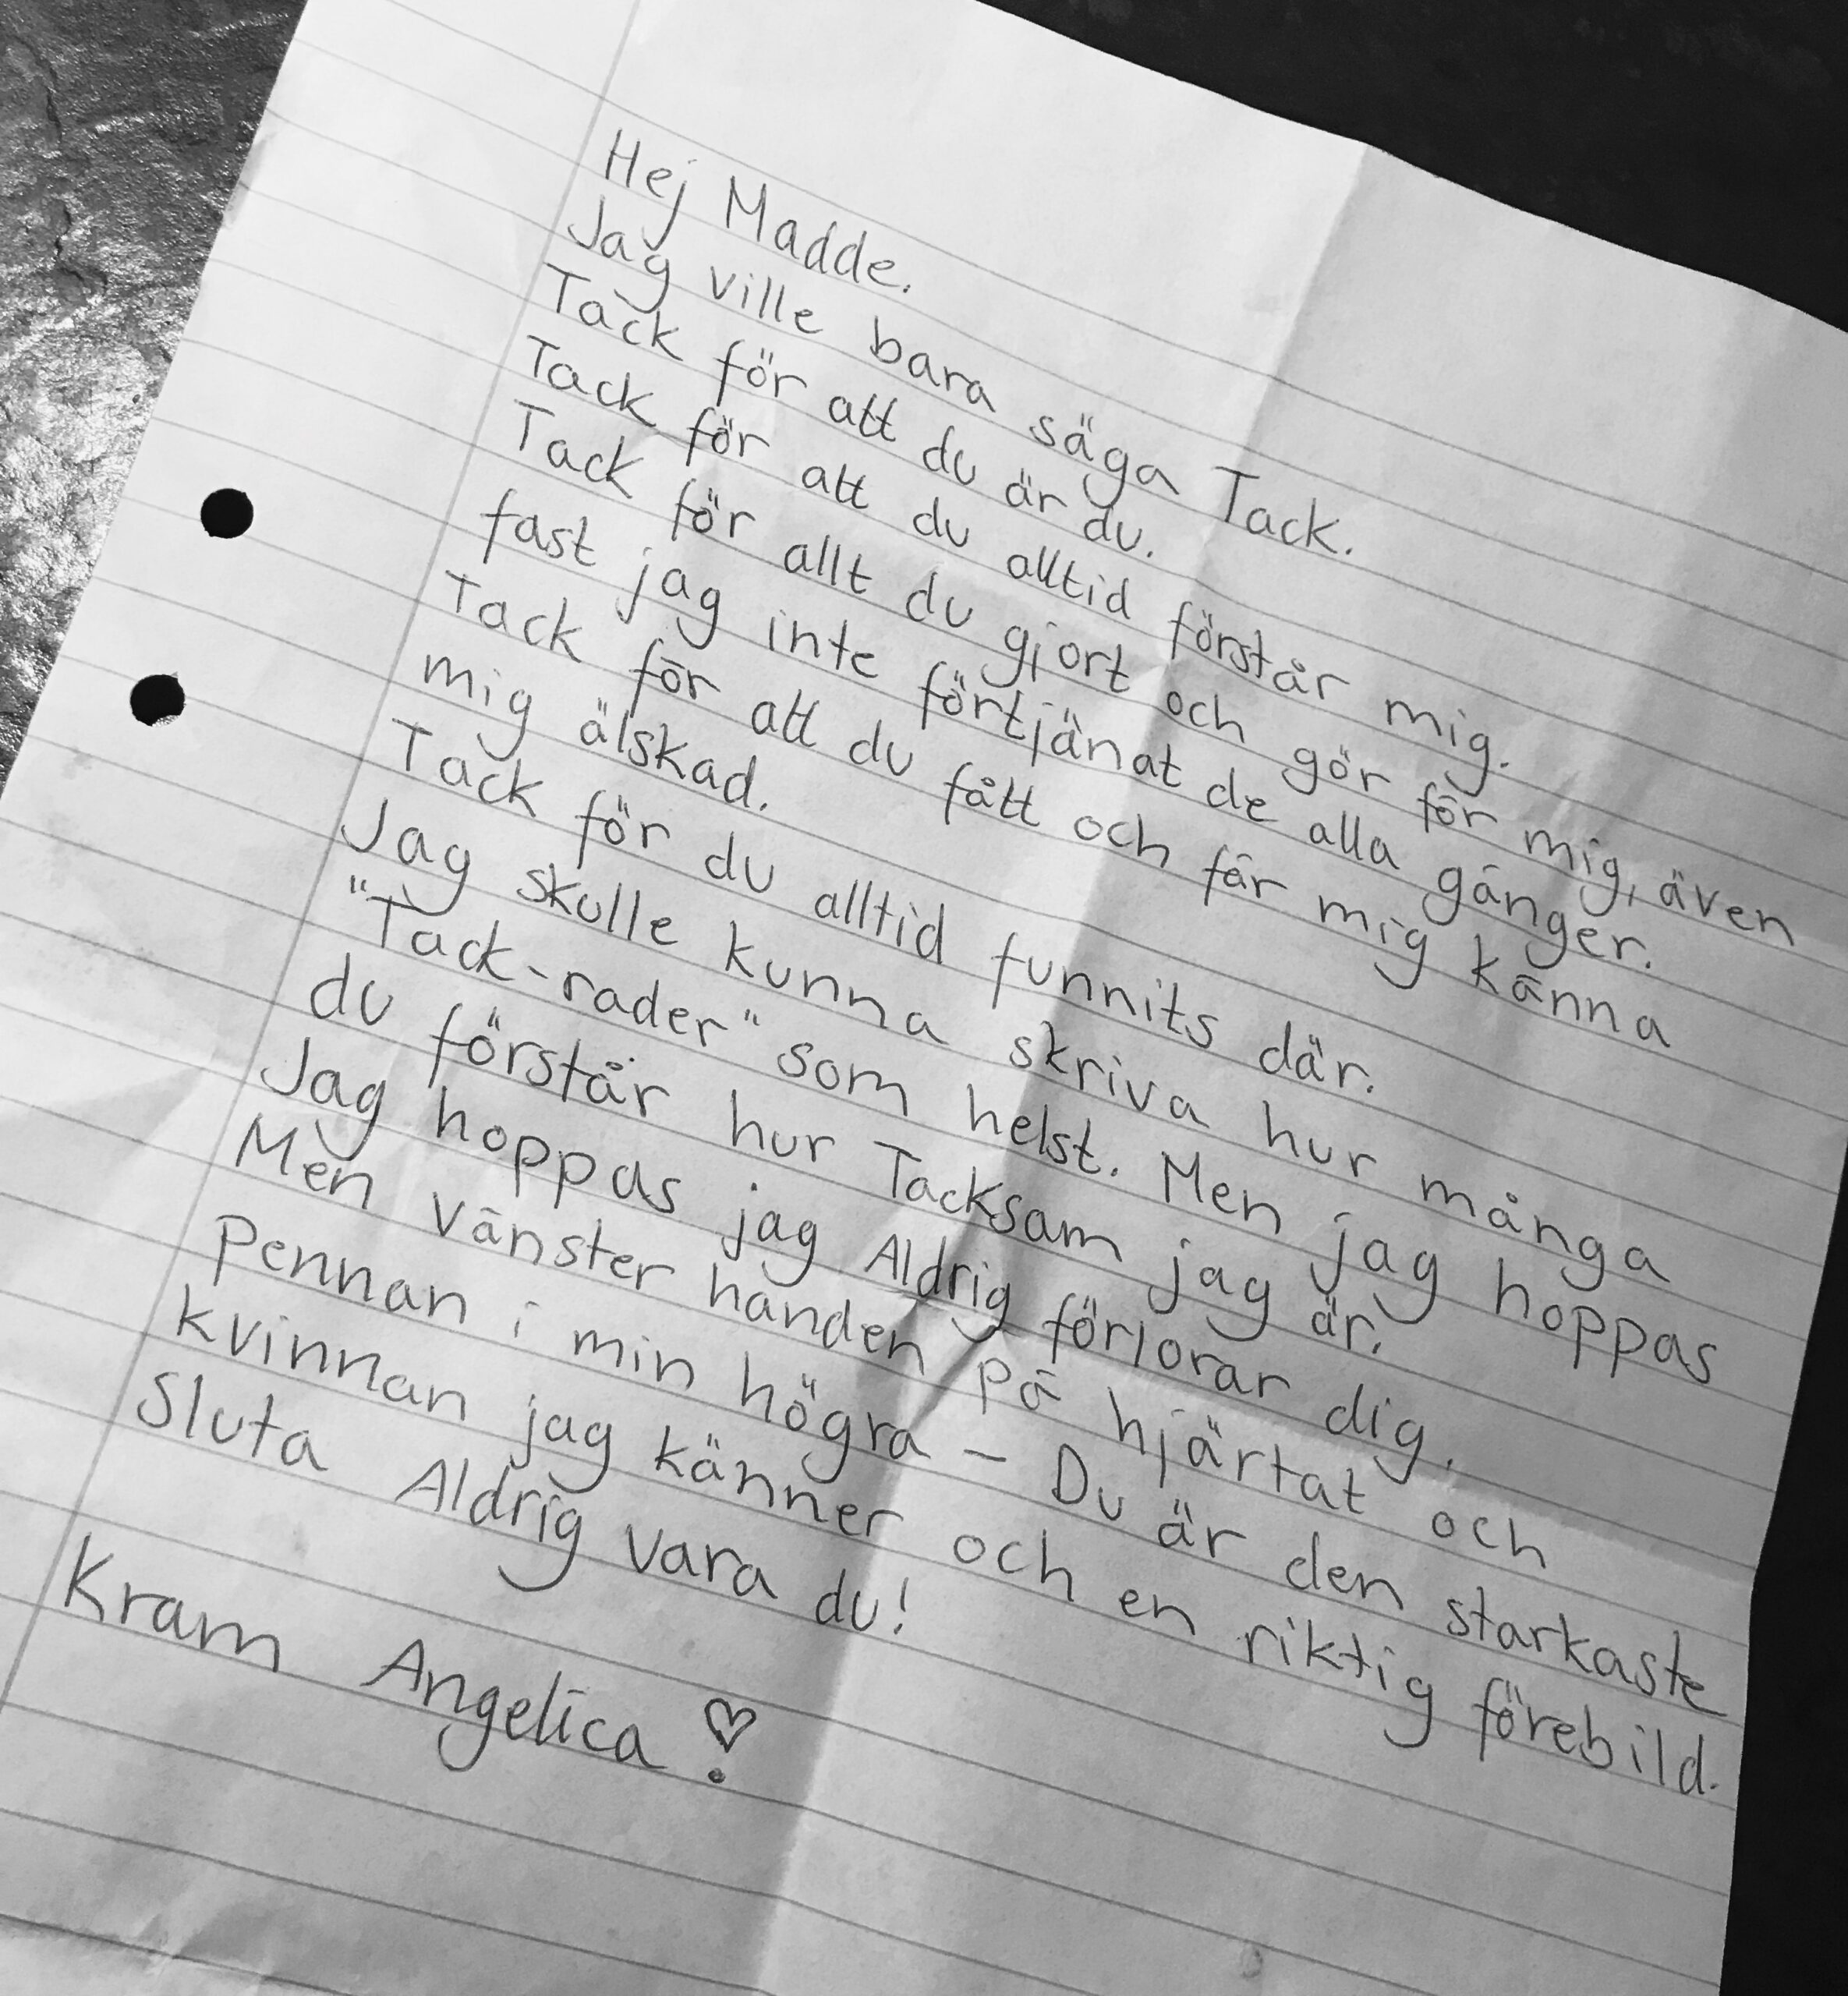 Hej Madde.
Jag ville bara säga Tack.
Tack för att du är du.
Tack för att du alltid förstår mig.
Tack för allt du gjort och gör för mig, även
fast jag inte förtjänat de alla gånger.
Tack för att du fått och får mig känna
mig älskad.
Tack för du alltid funnits där.
Jag skulle kunna skriva hur många
"Tack-rader" som helst. Men jag hoppas
du förstår hur Tacksam jag är.
Jag hoppas jag Aldrig förlorar dig.
Men vänster handen på hjärtat och
Pennan i min högra - Du är den starkaste
kvinnan jag känner och en riktig förebild.
Sluta Aldrig vara du!
Kram Angelica